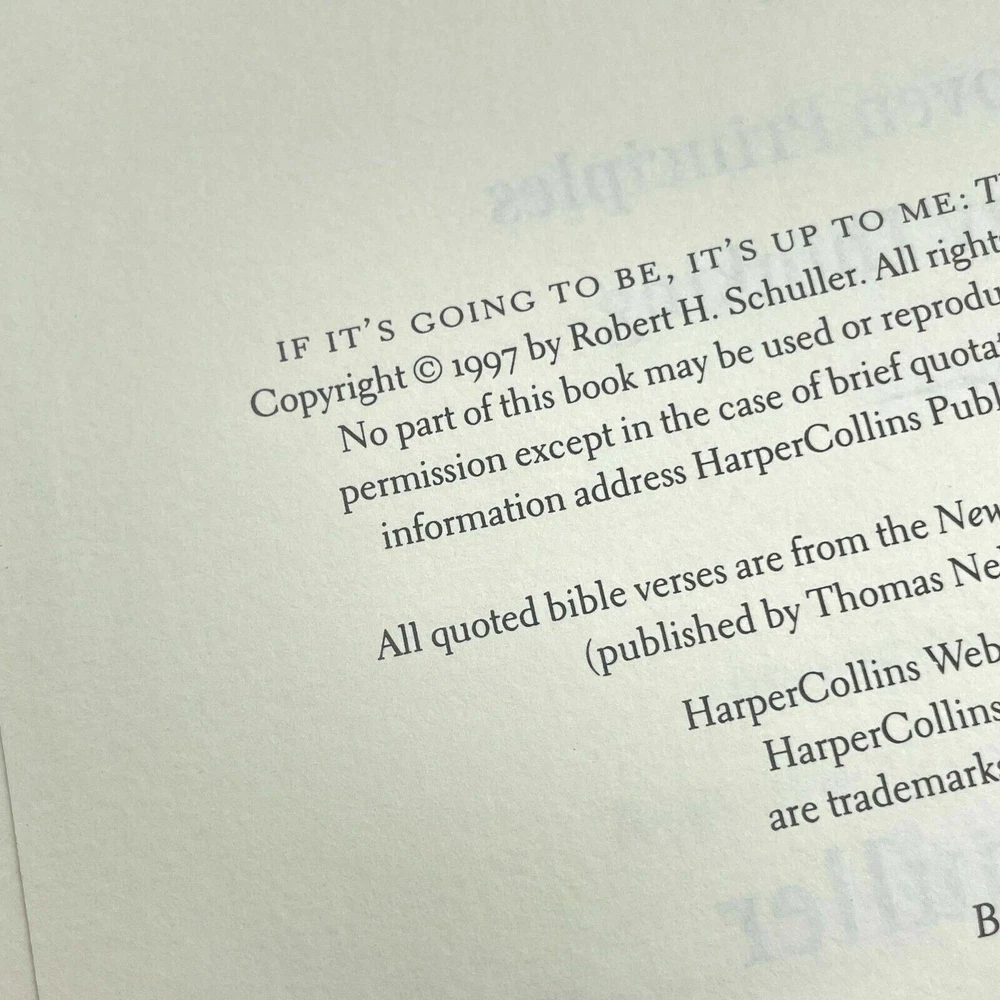 IF IT'S GOING TO BE, IT'S UP TO ME: T
Copyright © 1997 by Robert H. Schuller. All rights
No part of this book may be used or reprodu
permission except in the case of brief quotat
information address HarperCollins Publ
All quoted bible verses are from the New
(published by Thomas Nel
HarperCollins Web
HarperCollins
are trademarks
B